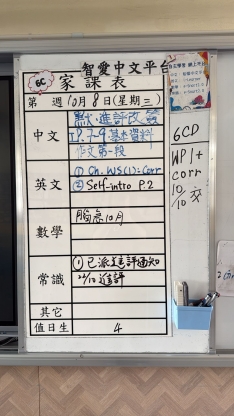 智愛中文平台
6C 家課表
第 週 10月8日(星期三)
中文
默、進評改簽
P.7-9 基本資料
作文第一段
英文
① Ch. WS(1): corr
② Self-intro P.2
數學
10月
常識
① 已派進評通知
22/10 進評
其它
值日生 4
6CD
WP1+
corr
10/10 交